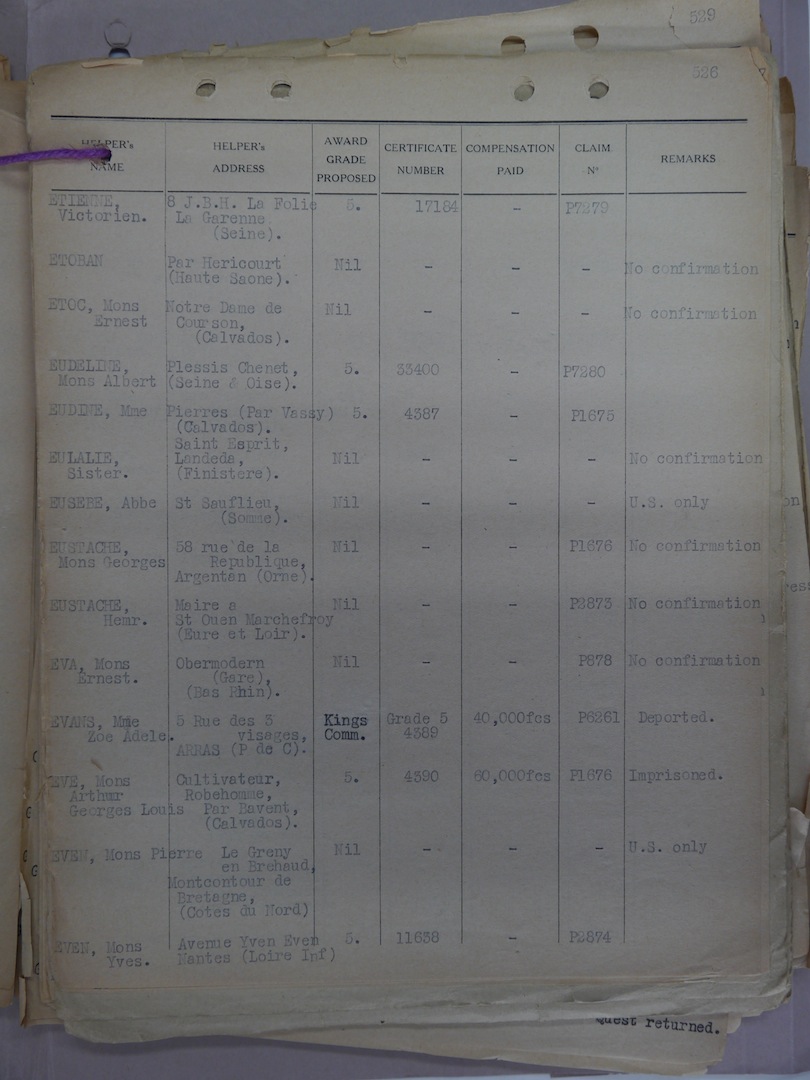 529
526
HELPER's NAME HELPER's ADDRESS AWARD GRADE PROPOSED CERTIFICATE NUMBER COMPENSATION PAID CLAIM Nº REMARKS
ETIENNE, 8 J.B.H. La Folie 5. 17184 - P7279
Victorien. La Garenne
(Seine).
ETOBAN Par Hericourt Nil - - - No confirmation
(Haute Saone).
ETOC, Mons Notre Dame de Nil - - - No confirmation
Ernest Courson,
(Calvados).
EUDELINE, Plessis Chenet, 5. 33400 - P7280
Mons Albert (Seine & Oise).
EUDINE, Mme Pierres (Par Vassy) 5. 4387 - P1675
(Calvados).
Saint Esprit,
EULALIE, Landeda, Nil - - - No confirmation
Sister. (Finistere).
EUSEBE, Abbe St Sauflieu, Nil - - - U.S. only
(Somme).
EUSTACHE, 58 rue de la Nil - - P1676 No confirmation
Mons Georges Republique,
Argentan (Orne).
EUSTACHE, Maire a Nil - - P2873 No confirmation
Hemr. St Ouen Marchefroy
(Eure et Loir).
EVA, Mons Obermodern Nil - - P878 No confirmation
Ernest. (Gare),
(Bas Rhin).
EVANS, Mme 5 Rue des 3 Kings Grade 5 40,000fcs P6261 Deported.
Zoe Adele. visages, Comm. 4389
ARRAS (P de C).
EVE, Mons Cultivateur, 5. 4390 60,000fcs P1676 Imprisoned.
Arthur Robehomme,
Georges Louis Par Bavent,
(Calvados).
EVEN, Mons Pierre Le Greny Nil - - - U.S. only
en Brehaud,
Montcontour de
Bretagne,
(Cotes du Nord)
EVEN, Mons Avenue Yven Even 5. 11638 - P2874
Yves. Nantes (Loire Inf)
Quest returned.